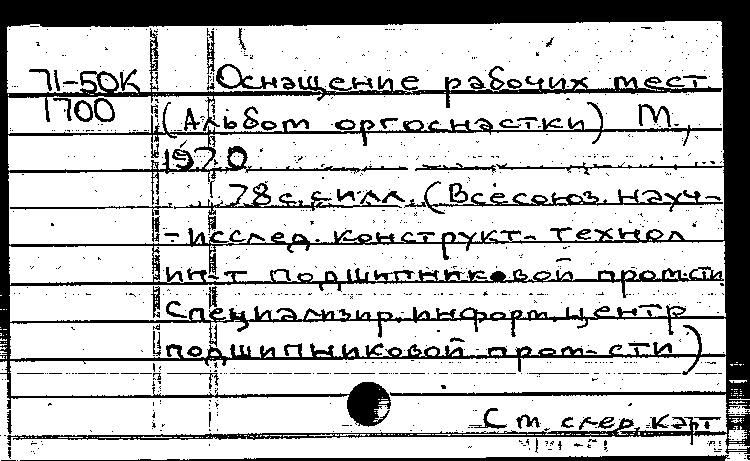 71-50К Оснащение рабочих мест.
1700 (Альбом оргоснастки) М.,
1970
78 с. с илл. (Всесоюз. науч-
-исслед. конструкт- технол
ин-т подшипниковой пром-сти
Специализир. информ. центр
подшипниковой пром-сти)
См. след. карт